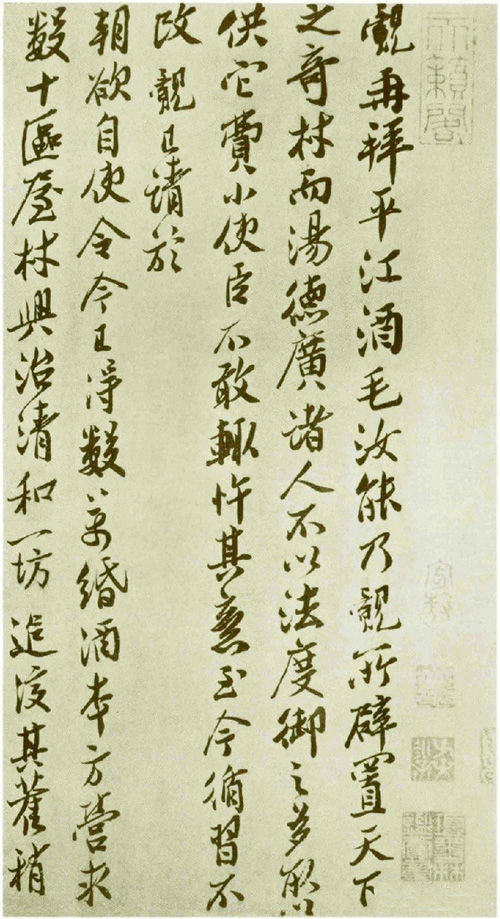 天籟閣
覿再拜平江酒毛汝能乃覿所辟置天下
之奇材而湯德廣諸人不以法度御之多取以
供它費小使臣不敢輒忤其意至今循習不
改覿已請於
朝欲自使令今已得數万緡酒本方營求
數十區屋材興治清和一坊追復其舊稍